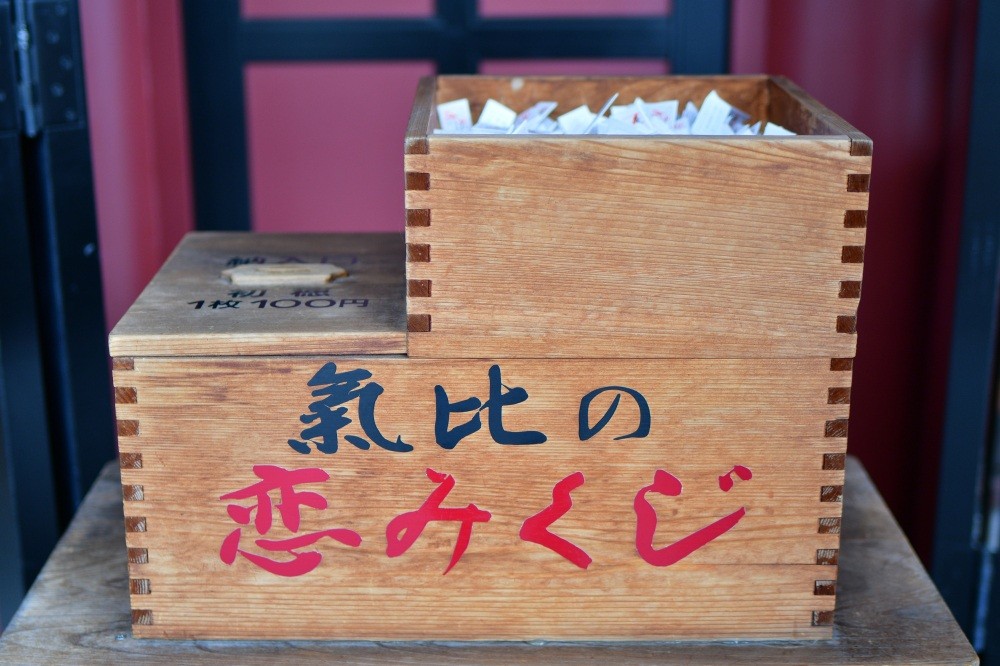 納入口
初穂
1枚100円
氣比の
恋みくじ